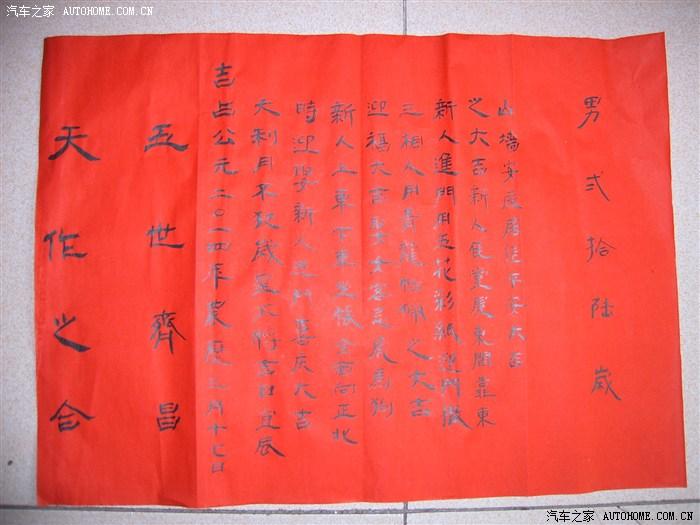 汽车之家 AUTOHOME.COM.CN
男弍拾陆歲
山墙安床居住平安大吉
之大吉新人食堂屋東間靠東
新人進門用五花彩紙迎門撒
三相人用青龍帖佩之大吉
迎福大吉送女客忌虎馬狗
新人上東下東坐帳全面向正北
時迎娶新人之門喜庆大吉
大利月不犯歲星大将吉社宜辰
吉占公元二〇一四年農历三月十七日
五世齊昌
天作之合
汽车之家 AUTOHOME.COM.CN